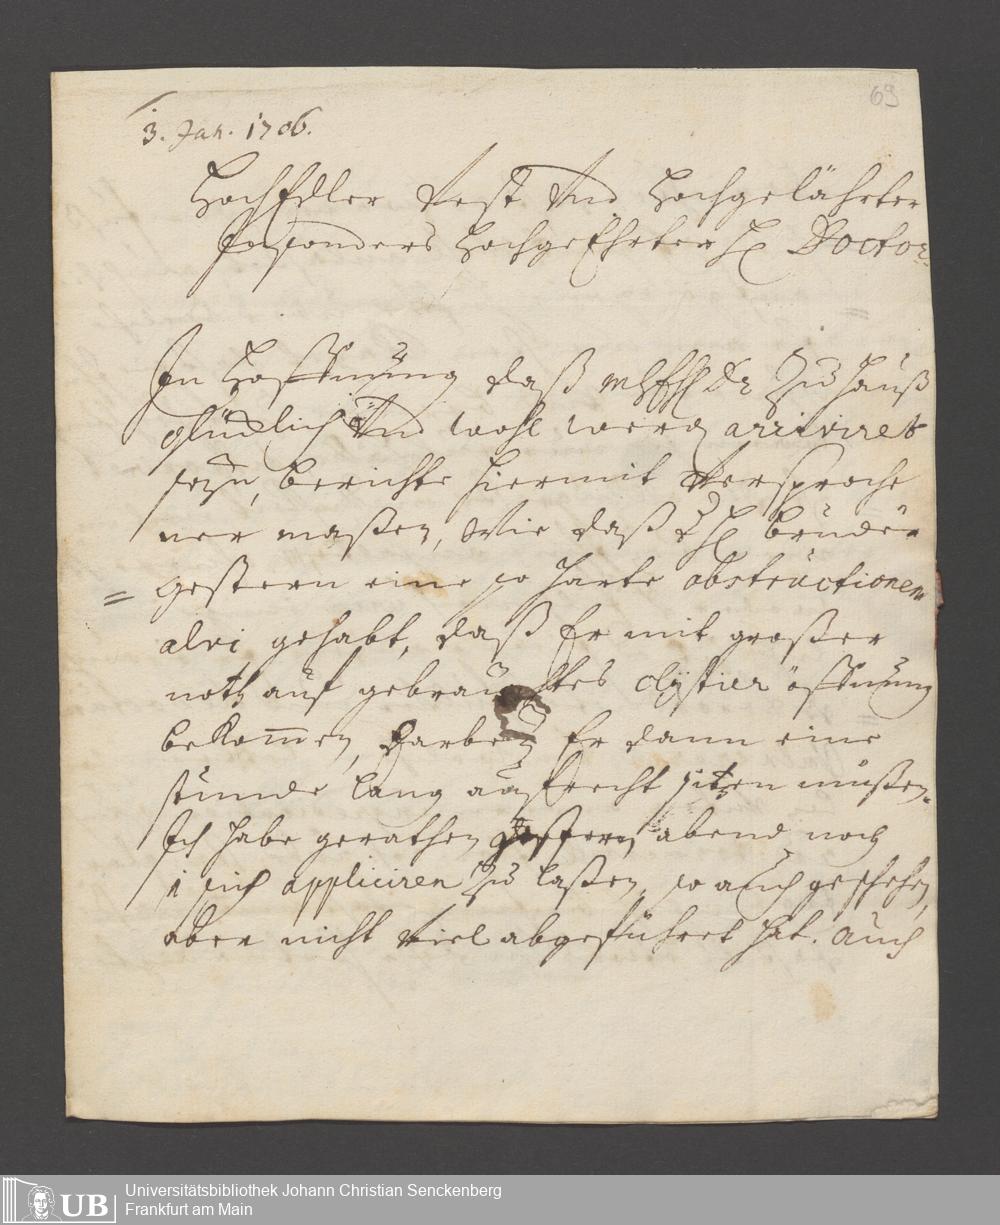 69
3. Jan. 1706.
HochEdler Vest Und Hochgelährter
Besonders Hochgeehrter H Doctor
In Hoffnung daß Zu Hauß
glücklich Und wohl werd arriviret
seyn, berichte hiermit Versproche
ner maßen, Wie daß H bruder
gestern eine so harte obstructionem
= alvi gehabt, daß Er mit großer
noth auf gebrauchtes clystier öffnung
bekommen, Darbey Er dann eine
stunde lang auffrecht sitzen müßen.
Ich habe gerathen gestern abend noch
1 sich appliciren Zu laßen, so auch geschehen,
aber nicht Viel abgeführet hat. Auch
UB
Universitätsbibliothek Johann Christian Senckenberg
Frankfurt am Main